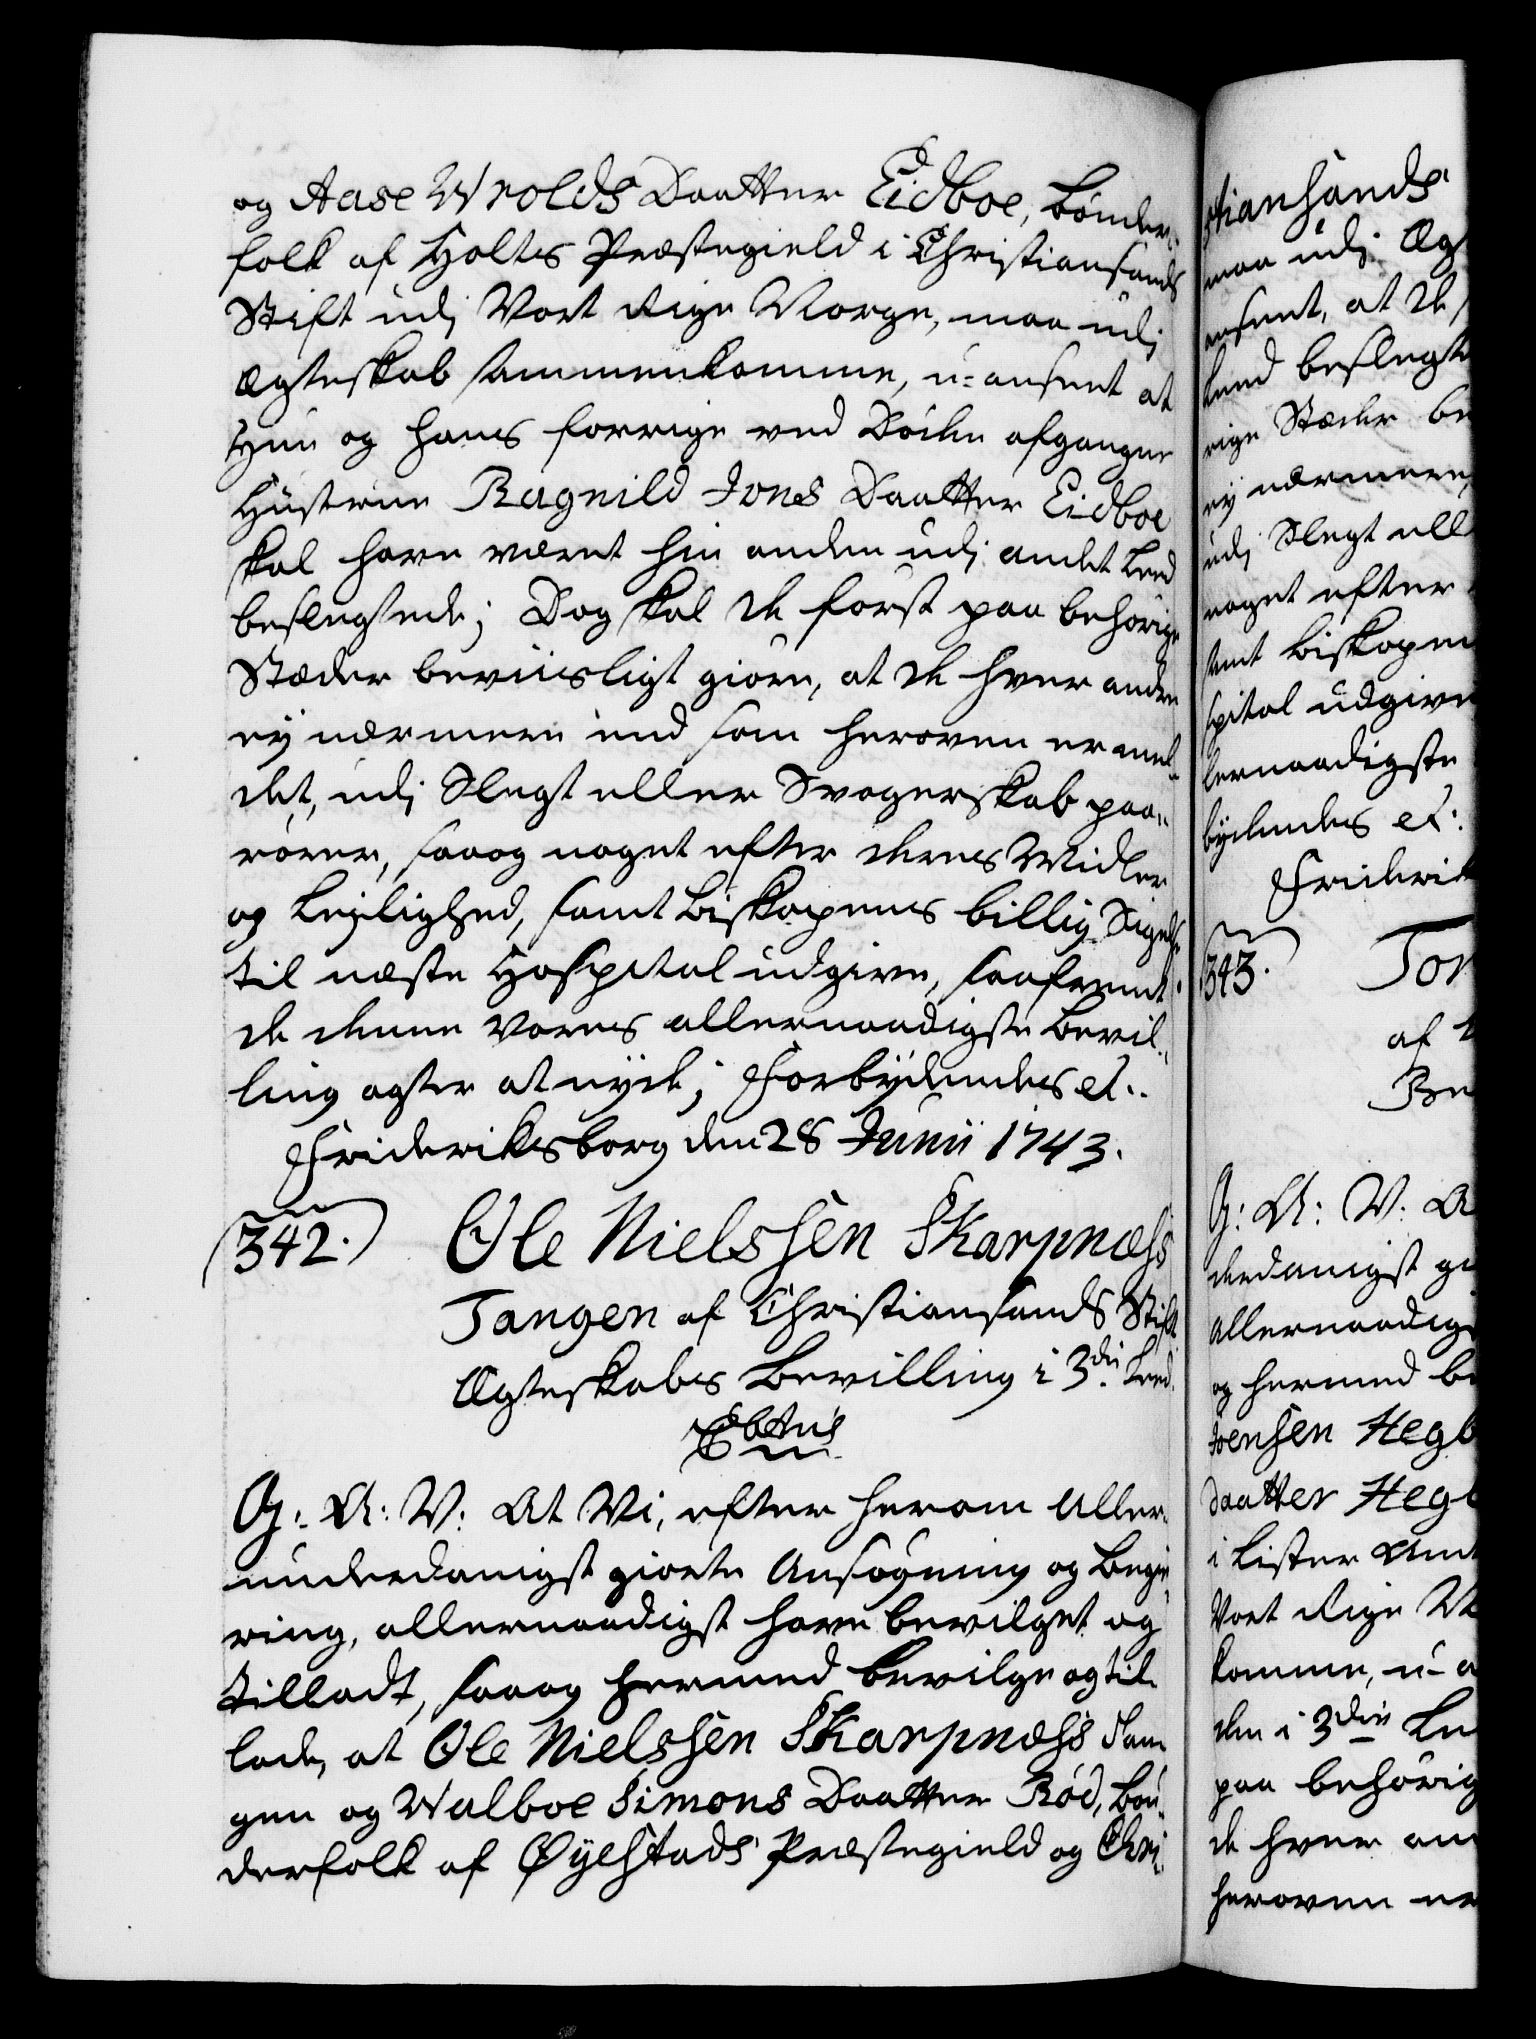 og Aase Wrolds Daatter Eidboe, bønder-
folk af Holtes Præstegield i Christiansands
Stift udj Vort Rige Norge, maa udj
Ægteskab sammenkomme, u-anseet at
Hun og hans forrige ved Døden afgangne
Hüstrue Ragnild Jons Daatter Eidboe
skal have været hin anden udj andet Leed
beslegtede; Dog skal de først paa behørige
Stæder beviisligt giøre, at de hver andre
ey nærmere end som heroven er mel-
det, udj Slegt eller Svogerskab paa-
rører, saaog noget efter deres Midler
og Lejlighed, samt Biskopens billig Sigelse
til næste Hospital udgive, saafremt
de denne Vores allernaadigste Bevil-
ling agter at nyde; Forbydendes et.
Frideriksborg den 28 Junii 1743.
342. Ole Nielssen Skarpnæss
Tangen af Christiansands Stift
Ægteskabs Bevilling i 3die Leed.
G: A: V: At Vi, efter herom aller-
underdanigst giorte Ansøgning og Begie-
ring, allernaadigst have bevilget og
tilladt, saaog hermed bevilge og til-
lade, at Ole Nielssen Skarpnæss Tan-
gen og Walboe Simons Daatter Rød, Bøn-
derfolk af Øyestads Præstegield og Chri-
stiansands
maa udj Æg
anseet, at de
Leed beslegte
rige Stæder be
ey nærmere,
udj Slegt ell
noget efter
samt Biskopen
spital udgive
lernaadigste
bydendes et:
Friderik
343. Tor
af
Be
G: A: V: A
derdanigst gi
allernaadigs
og hermed be
Joensen Hegb
Daatter Hegb
i Lister Amt
Vort Rige No
komme, u-a
den i 3die Le
paa behørig
de hver an
heroven er